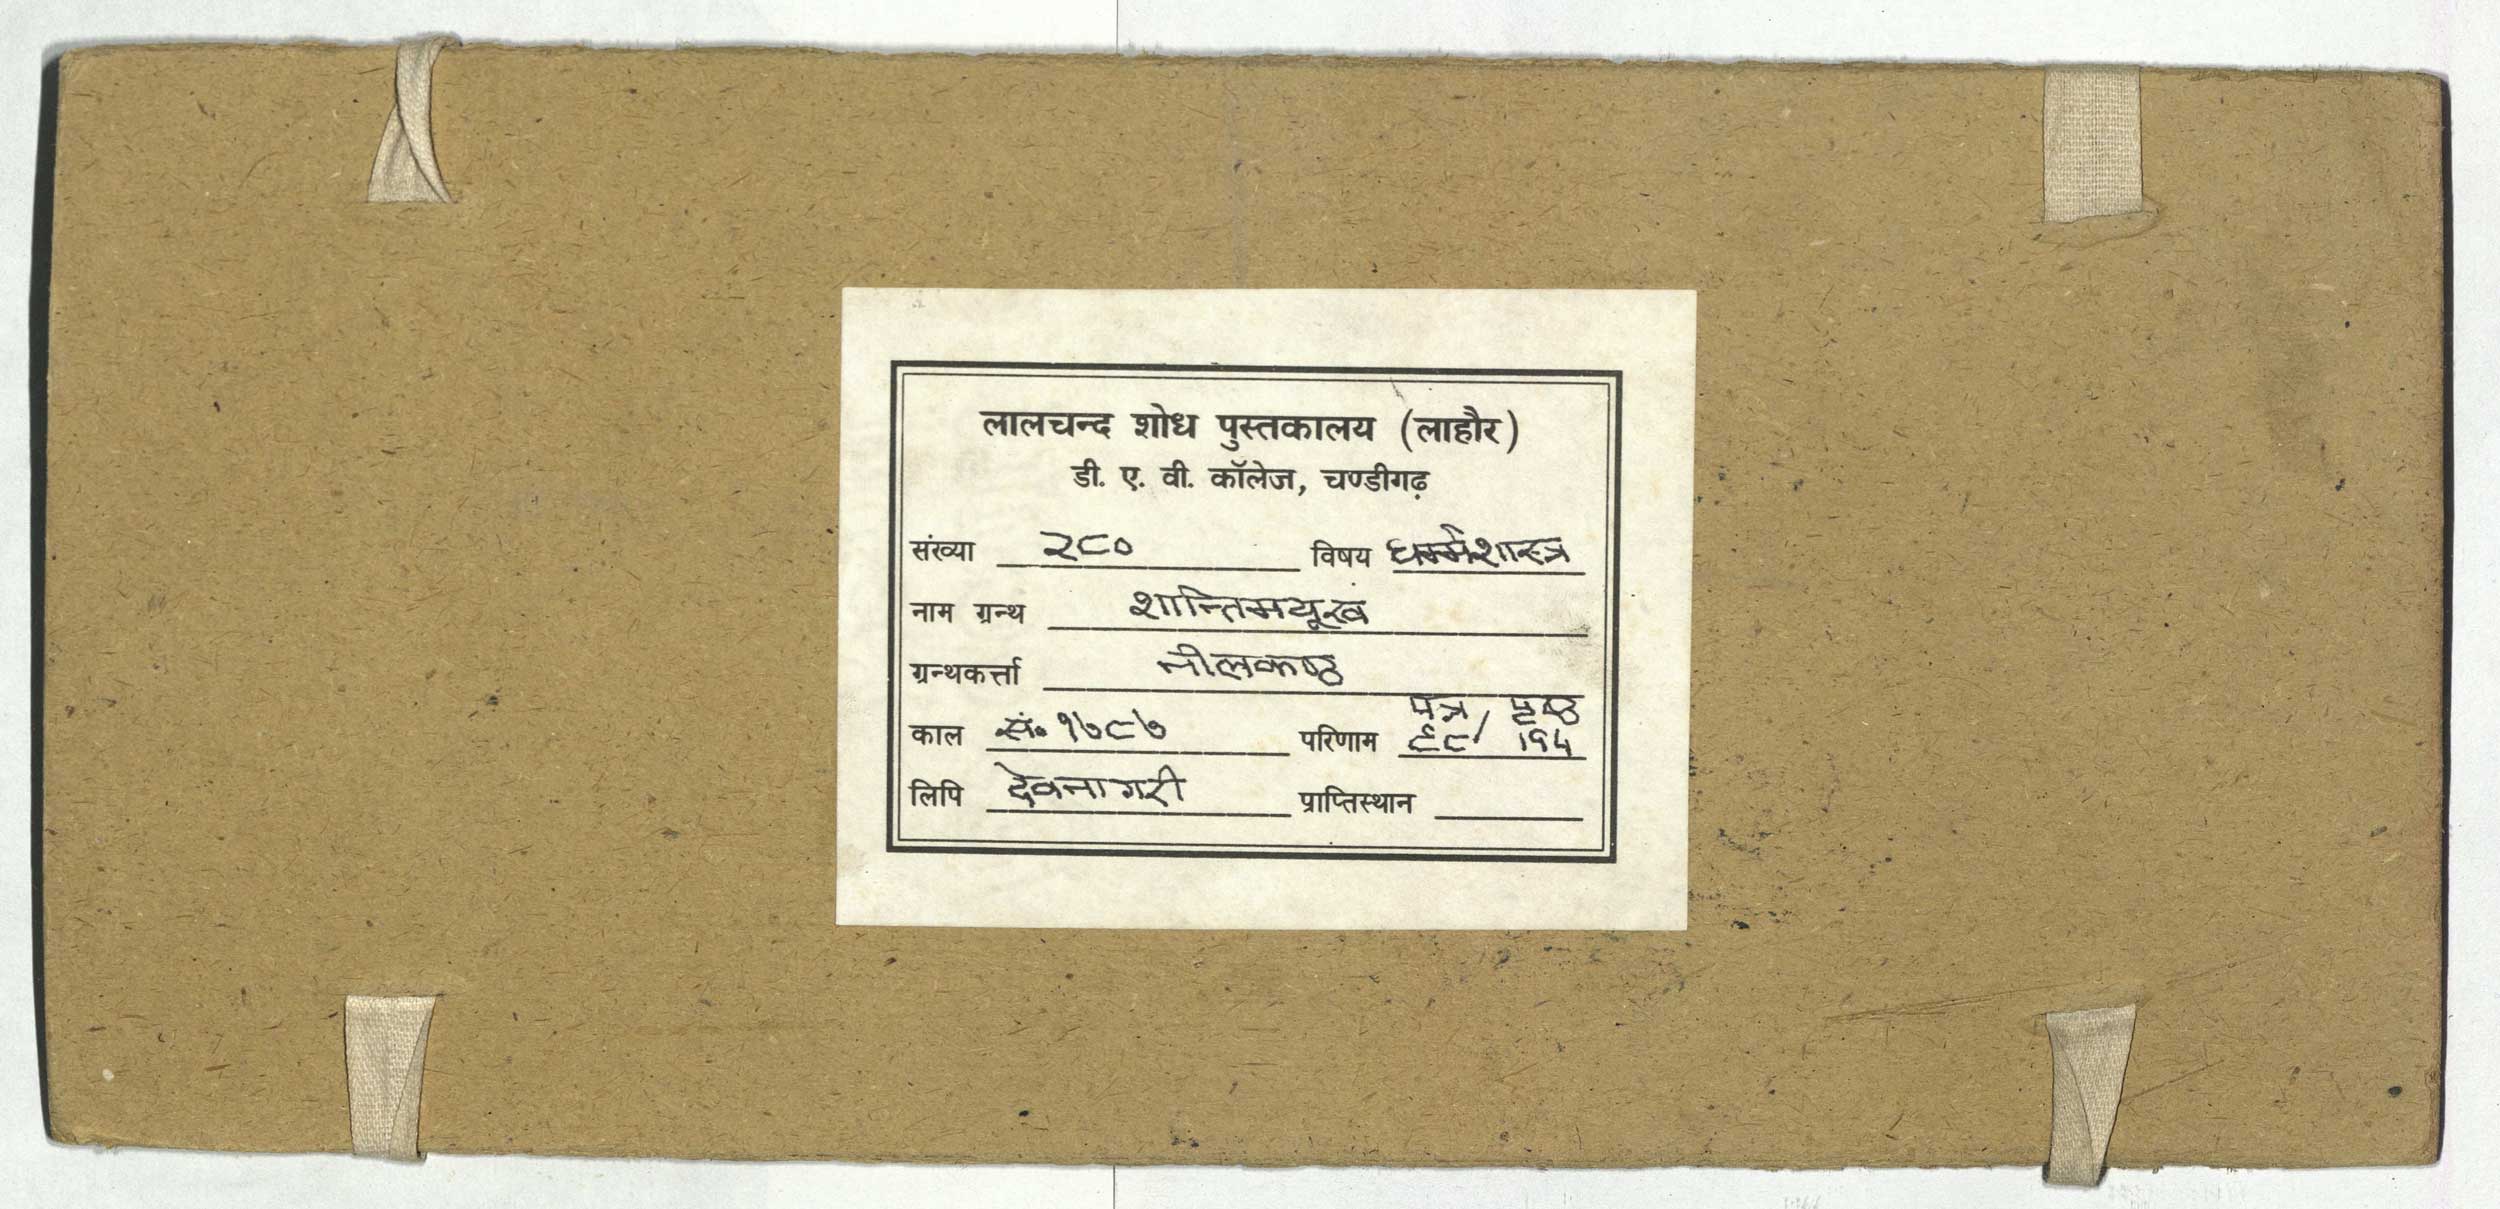 लालचन्द शोध पुस्तकालय (लाहौर)
डी. ए. वी. कॉलेज, चण्डीगढ़
संख्या २८० विषय धर्म्मशास्त्र
नाम ग्रन्थ शान्तिमयूख
ग्रन्थकर्त्ता नीलकण्ठ
पत्र / पृष्ठ
काल सं॰ १७८७ परिणाम ९८/ १९५
लिपि देवनागरी प्राप्तिस्थान